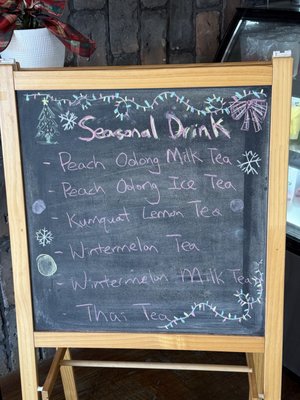 Seasonal Drink
- Peach Oolong Milk Tea
- Peach Oolong Ice Tea
- Kumquat Lemon Tea
- Wintermelon Tea
- Wintermelon Milk Tea
- Thai Tea